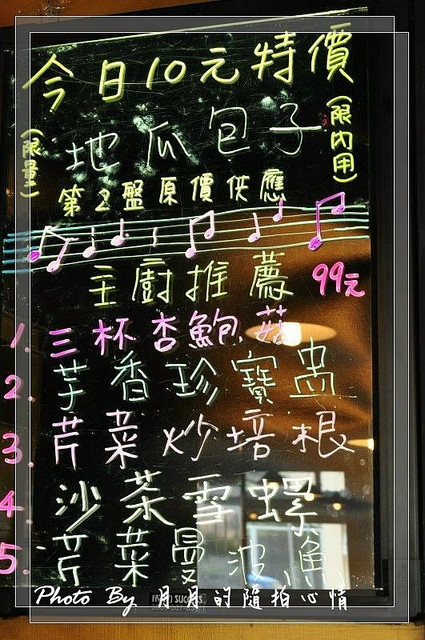 今日10元特價
地瓜包子
(限內用)
(限量)
第2盤原價供應
主廚推薦 99元
1. 三杯杏鮑菇
2. 芋香珍寶盅
3. 芹菜炒培根
4. 沙茶雪螺
5. 芹菜曼波魚
Photo By 月月的隨拍心情